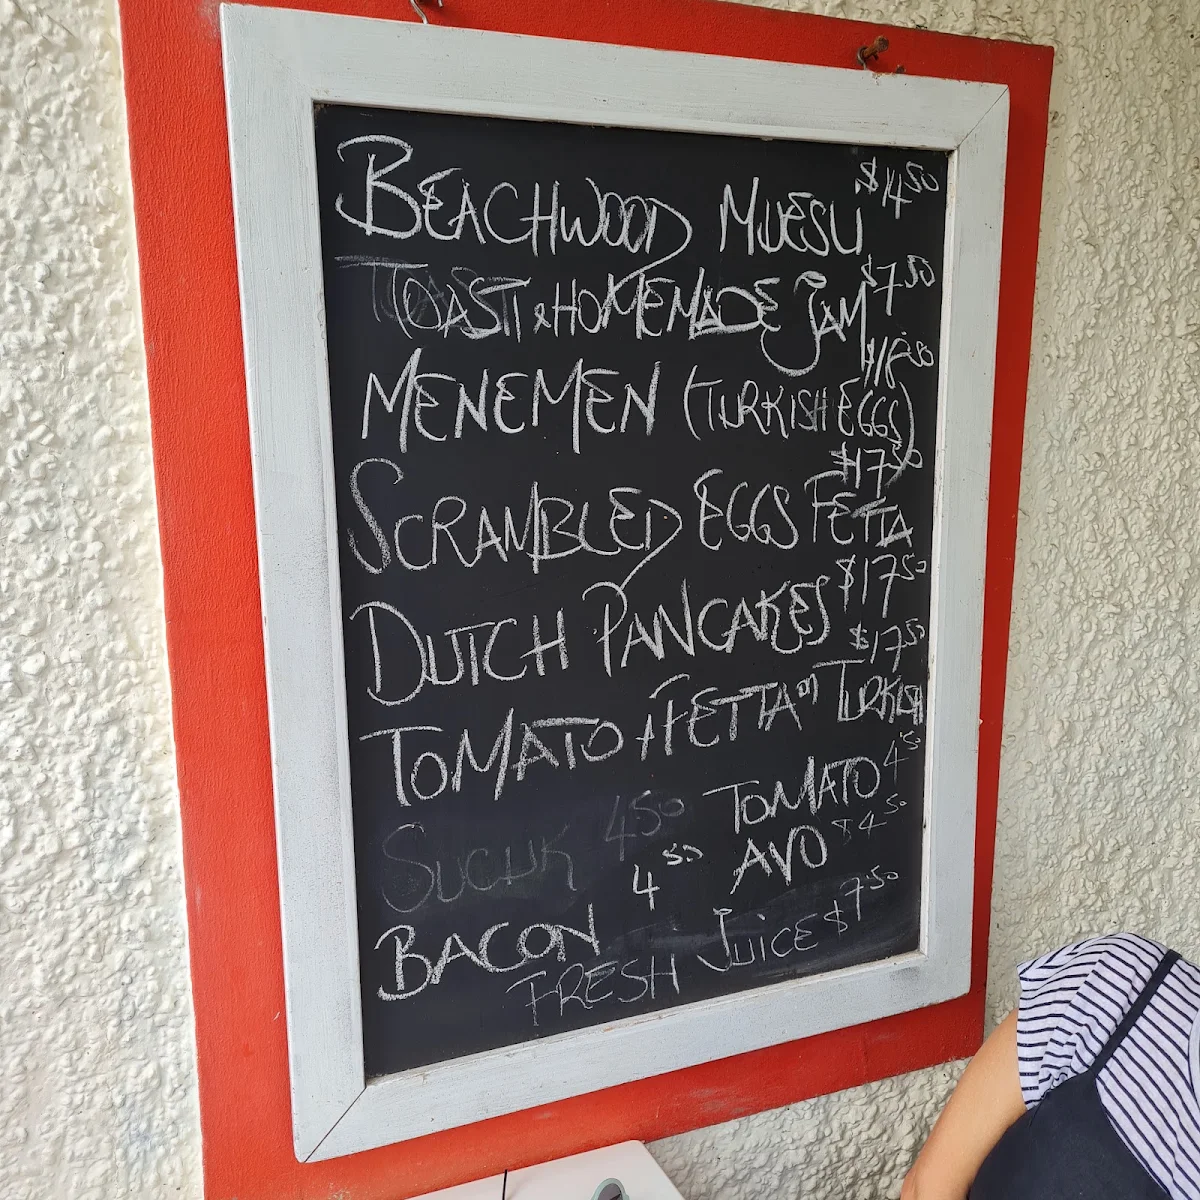 BEACHWOOD MUESLI $14.50
TOAST & HOMEMADE JAM $7.50
MENEMEN (TURKISH EGGS)
SCRAMBLED EGGS FETTA $17.50
DUTCH PANCAKES $17.50
TOMATO + FETTA on TURKISH $17.50
SUCUK 450 TOMATO 4.50
BACON 4.50 AVO $4.50
FRESH JUICE $7.50